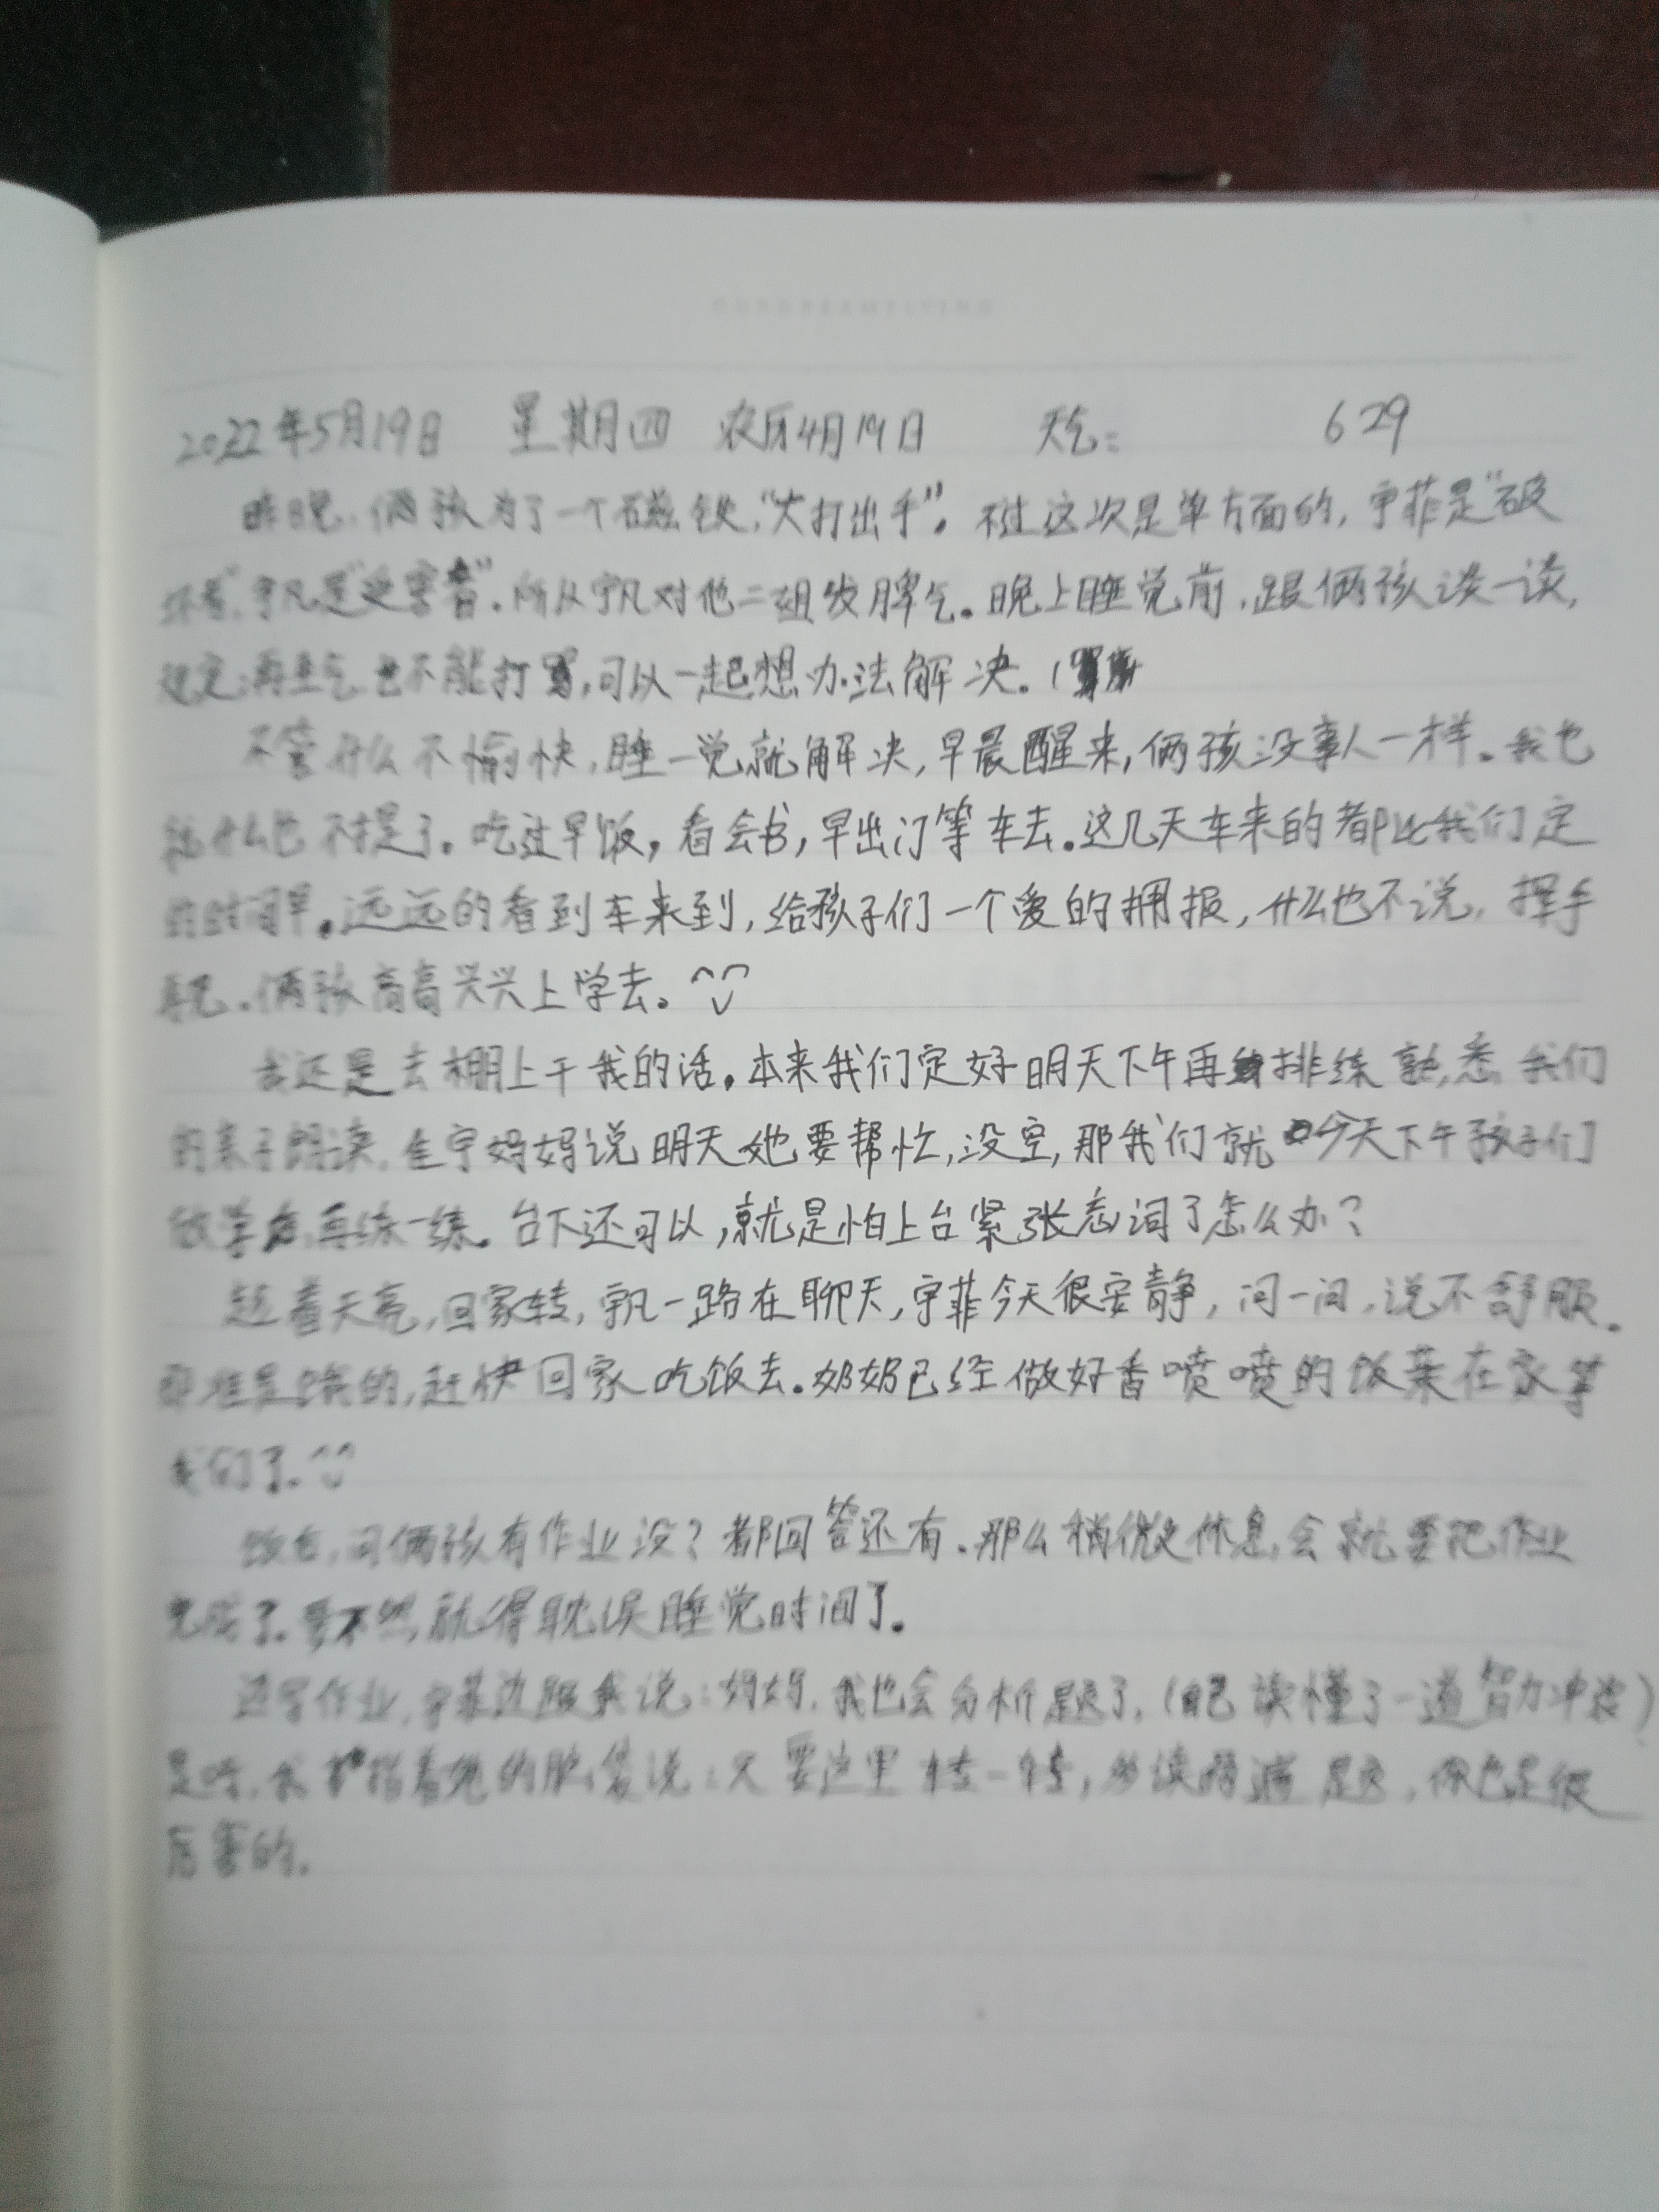 2022年5月19日 星期四 农历4月19日 天气: 629
昨晚,俩孩为了一个磁铁,“大打出手”。不过这次是单方面的,宇菲是“破
坏者”,宇凡是“受害者”.所以宇凡对他二姐发脾气。晚上睡觉前,跟俩孩谈一谈,
规定:再生气也不能打骂,可以一起想办法解决。
不管什么不愉快,睡一觉就解决,早晨醒来,俩孩没事人一样。我也
就什么也不提了。吃过早饭,看会书,早出门等车去。这几天车来的都比我们定
的时间早。远远的看到车来到,给孩子们一个爱的拥报,什么也不说,挥手
再见.俩孩高高兴兴上学去。
我还是去棚上干我的活。本来我们定好明天下午再排练熟悉我们
的亲子朗读,佳宇妈妈说明天她要帮忙,没空,那我们就今天下午孩子们
放学后,再练一练。台下还可以,就是怕上台紧张忘词了怎么办?
趁着天亮,回家转,宇凡一路在聊天,宇菲今天很安静,问一问,说不舒服。
那准是饿的,赶快回家吃饭去.奶奶已经做好香喷喷的饭菜在家等
我们了.
饭后,问俩孩有作业没?都回答还有.那么稍微休息会就要把作业
完成了.要不然,就得耽误睡觉时间了。
边写作业,宇菲边跟我说:妈妈,我也会分析题了,(自己读懂了一道智力冲浪)
是呀,我指着她的脑袋说:只要这里转一转,多读两遍题,你也是很
厉害的.